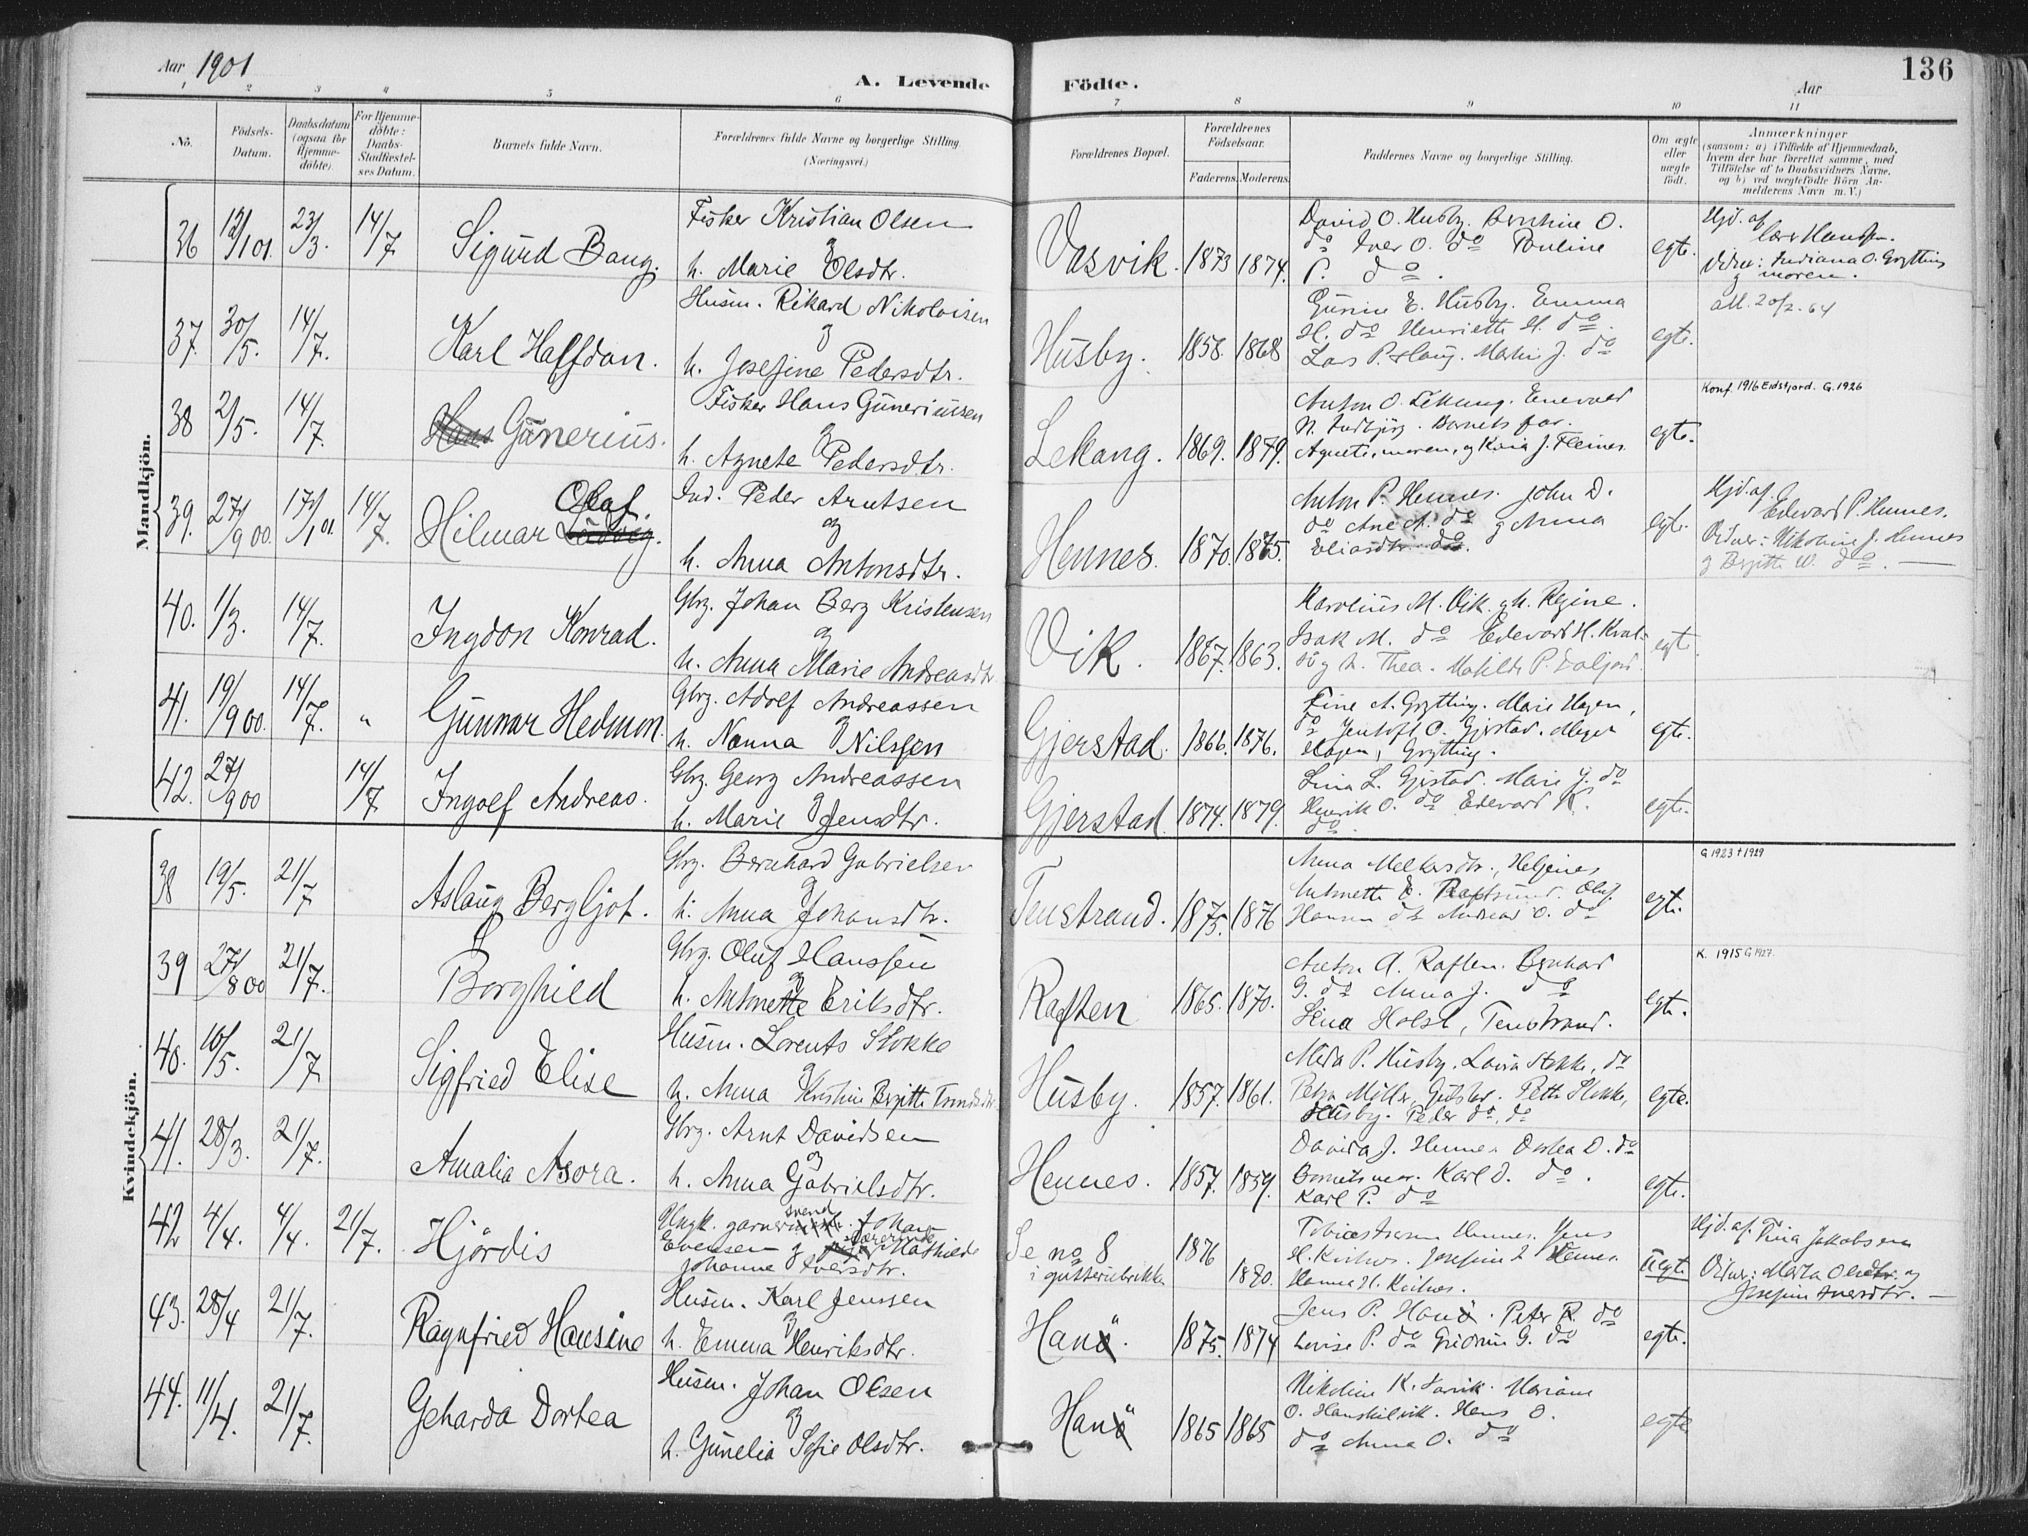 Aar 1901
A. Levende Födte.
Aar
136
1 2 3 4 5 6 7 8 9 10 11
No.
Födsels-Datum.
Daabsdatum (ogsaa for Hjemmedöbte).
For Hjemmedöbte: Daabs-Stadfæstelses Datum.
Barnets fulde Navn.
Forældrenes fulde Navne og borgerlige Stilling (Næringsvei.)
Forældrenes Bopæl.
Forældrenes Födselsaar.
Faderens. Moderens.
Faddernes Navne og borgerlige Stilling.
Om ægte eller uægte födt.
Anmærkninger (saasom: a) i Tilfælde af Hjemmedaab, hvem der har forrettet samme, med Tilföielse af to Daabsvidners Navne, og b) ved uægtefödte Börn Anmelderens Navn m. V.)
Mandkjön.
36 23/3. 14/7 Sigurd Bang. Fisker Kristian Olsen
og
h. Marie Olsdtr. Vasvik. 1873 1874. David O. Husby. O.
do Iver O. do Pauline
P. do. egte. Hjd. af
Hansen.
Vidner: Indiana O. Grytting
og moren.
37. 30/5. 14/7. Karl Halfdan. Husm. Rikard Nikolaisen
og
h. Josefine Pedersdtr. Husby. 1858. 1868 E. Husby. Emma
H. do Henriette H. do.
Lars P. Haug. Martin J. do egte.
38 2/5. 14/7. Hans Gunerius. Fisker Hans Guneriussen
og
h. Agnete Pedersdtr. Lekang. 1869. 1879. Anton O. Lekang.
Barnets far.
Agnete, moren, og J. Fleines. egte. Konf. 1916 Eidsfjord. G. 1926
39. 27/9 00. 17/1 01. 14/7. Hilmar Ludvig. Olaf. Ind. Peder Arntsen
og
h. Anna Antonsdtr. Hennes. 1870. 1875. Anton P. Hennes. John D.
do Ane A. do og Anna
Eliasdtr. do. egte. Hjd. af
Edevard P. Hennes.
Vidner: Nikoline J. Hennes
og do.
40. 1/3. 14/7. Ingdon Konrad. Gbrg. Johan Berg Kristensen
og
h. Anna Marie Andreasdtr Vik. 1867. 1863. Karolius M. Vik. og h. Regine.
Isak M. do Edevard H.
og h. Thea. Matilde P. egte.
41. 19/9 00. 14/7. " Gunnar Hedmon. Gbrg. Adolf Andreassen
og
h. Nanna Nilssen Gjerstad. 1866. 1876. Tine A. Grytting. Marie Hagen,
do Jentoft O. Gjerstad.
Hagen, Grytting. egte.
42. 27/9 00 14/7 Ingolf Andreas. Gbrg. Georg Andreassen
og
h. Marie Jensdtr. Gjerstad. 1874. 1879. Lina L. Gjerstad. Marie J. do
Henrik O. do Edevard K.
do. egte.
Kvindekjön.
38 19/5. 21/7 Aslaug Bergljot. Gbrg. Bernhard Gabrielsen
og
h. Anna Johansdtr. Tenstrand. 1875. 1876 Anna
Raftsund. Oluf
Hansen do Andreas O. do egte. G 1923 + 1929
39 27/8 00 21/7. Borghild Gbrg. Oluf Hanssen
og
h. Antonette Eriksdtr. Raften 1865. 1870. Anton A. Raften. Bernhard
G. do Anna J. do
Lina Holst, Tenstrand. egte. K. 1915 G 1927.
40. 10/5. 21/7 Sigfried Elise Husm. Lorents Stokke
og
h. Anna Kristine Birgitte Husby. 1857. 1861. P. Husby. Stokke, do
Petra Möller, Stokke,
Husby. Peder do. do egte.
41. 28/3. 21/7. Amalia Asora. Gbrg. Arnt Davidsen
og
h. Anna Gabrielsdtr. Hennes. 1857. 1859. Davida J. Hennes Dortea D. do
Barnets mor. Karl D. do.
Karl P. do egte.
42 4/4. 4/4. 21/7. Hjördis Ungk. svend Johan
Evensen og lærerinde Mathilde
Johanne Iversdtr. Se no 8
i gutterubrikken 1876 1880. Tobias Hennes. Jens
H. Josefine L Hennes.
Hanna H. uegte Hjd. af Tina Jakobsen
Vidner: Marta Olsdtr. og
Josefine Iversdtr.
43. 28/4 21/7. Ragnfried Hansine Husm. Karl Jenssen
og
h. Emma Henriksdtr. Hanö. 1875. 1874 Jens P. Hanö. Peter R. do
Lovise P. do Gudrun G. do egte.
44. 11/4. 21/7. Geharda Dortea Husm. Johan Olsen
og
h. Gunelia Sofie Olsdtr. Hanö 1865 1865 Nikoline K.
O. Hanskilvik. Hans O.
do Anna O. do egte